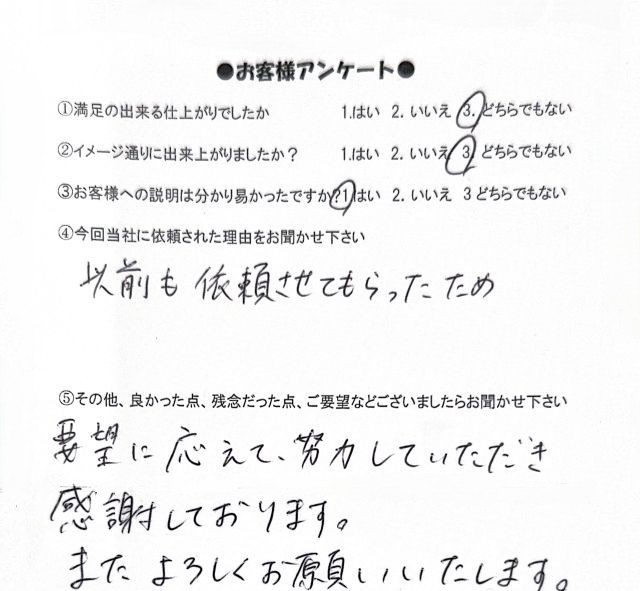 ●お客様アンケート●
①満足の出来る仕上がりでしたか 1.はい 2.いいえ 3.どちらでもない
②イメージ通りに出来上がりましたか？ 1.はい 2.いいえ 3.どちらでもない
③お客様への説明は分かり易かったですか?1はい 2.いいえ 3どちらでもない
④今回当社に依頼された理由をお聞かせ下さい
以前も依頼させてもらったため
⑤その他、良かった点、残念だった点、ご要望などございましたらお聞かせ下さい
要望に応えて、努力していただき
感謝しております。
またよろしくお願いいたします。